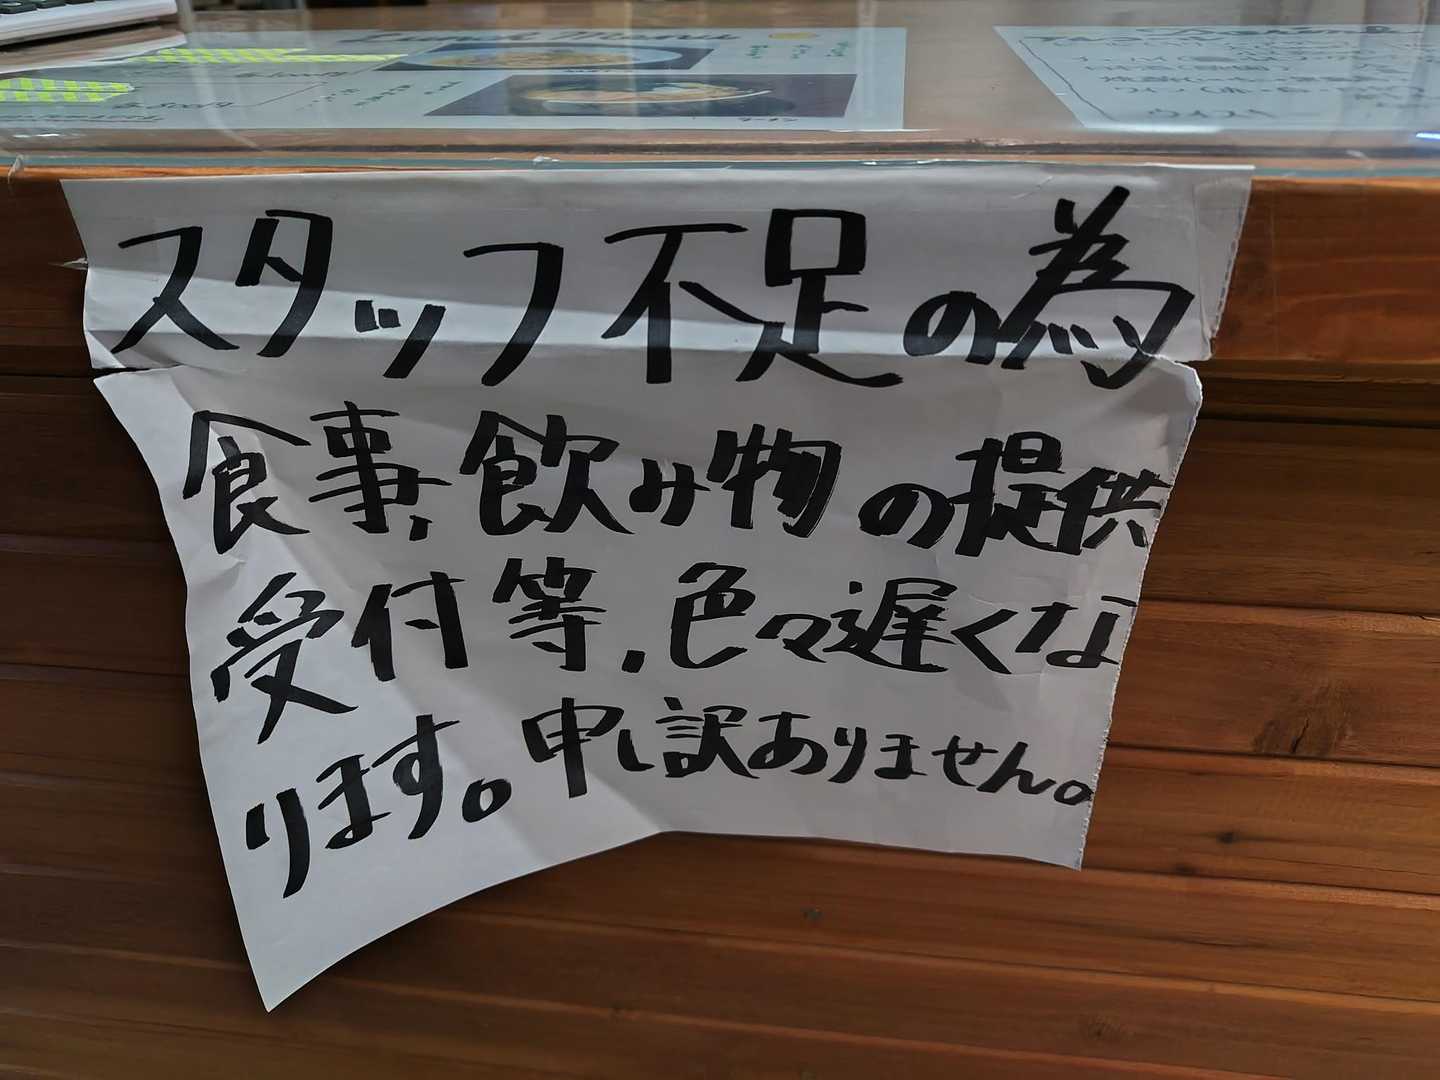 Lunch Menu
スタッフ不足の為
食事、飲み物の提供
受付等、色々遅くな
ります。申し訳ありません。